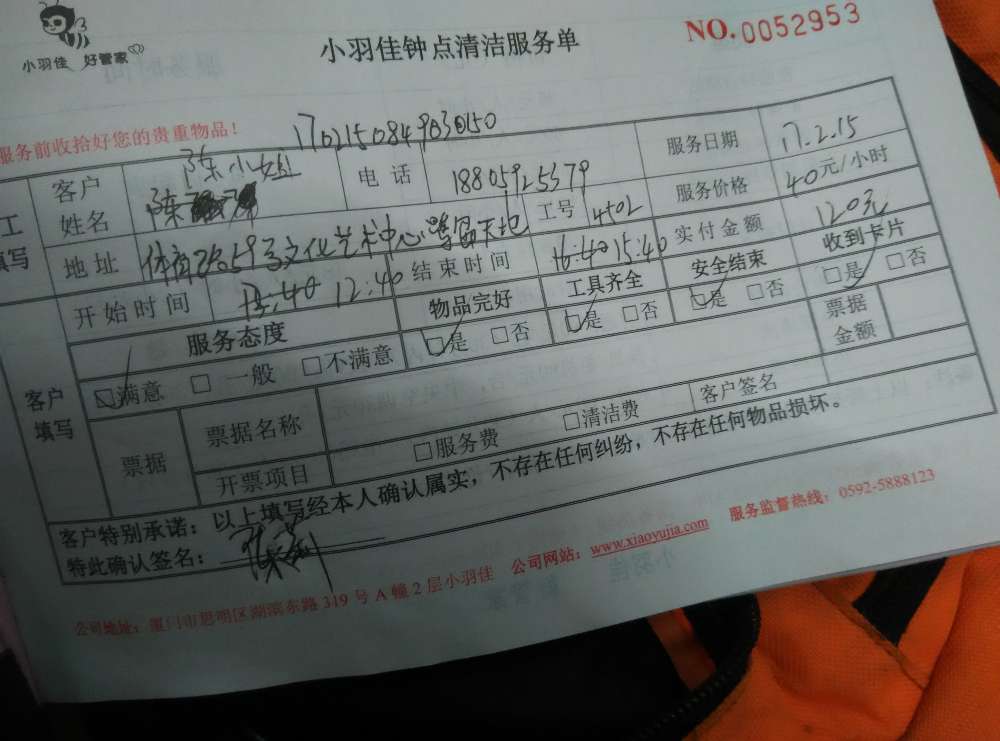 小羽佳 好管家
小羽佳钟点清洁服务单
NO.0052953
服务前收拾好您的贵重物品!
170215084903050
工 填写
客户姓名 陈小姐 陈 电话 18805925579 服务日期 17.2.15
地址 体育路59号文化艺术中心 天地 工号 4502 服务价格 40元/小时
开始时间 12:40 结束时间 16:40 15:40 实付金额 120元
客户填写
服务态度 物品完好 工具齐全 安全结束 收到卡片
□满意 □一般 □不满意 □是 □否 □是 □否 □是 □否 □是 □否
票据 票据名称 票据金额
开票项目 □服务费 □清洁费 客户签名
客户特别承诺:以上填写经本人确认属实,不存在任何纠纷,不存在任何物品损坏。
特此确认签名:
公司地址:厦门市思明区湖滨东路319号A幢2层小羽佳 公司网站:www.xiaoyujia.com 服务监督热线:0592-5888123